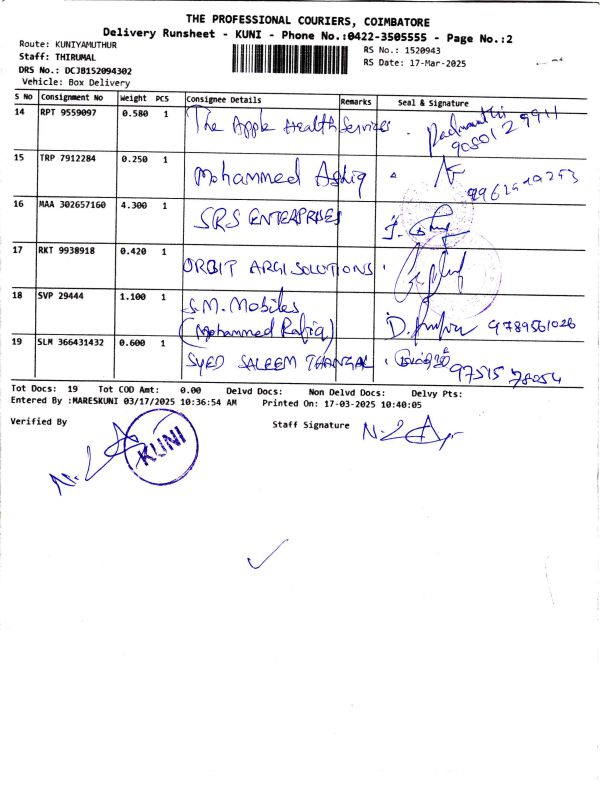 THE PROFESSIONAL COURIERS, COIMBATORE
Delivery Runsheet - KUNI - Phone No.:0422-3505555 - Page No.:2
Route: KUNIYAMUTHUR
RS No.: 1520943
Staff: THIRUMAL
RS Date: 17-Mar-2025
DRS No.: DCJB152094302
Vehicle: Box Delivery
S No Consignment No Weight PCS Consignee Details Remarks Seal & Signature
14 RPT 9559097 0.580 1 The Apple Health Services
15 TRP 7912284 0.250 1 Mohammed Ashiq
16 MAA 302657160 4.300 1 SRS ENTERPRISES
17 RKT 9938918 0.420 1 ORBIT ARGI SOLUTIONS
18 SVP 29444 1.100 1 S.M. Mobiles
(Mohammed Rafiq) 9789561026
19 SLM 366431432 0.600 1 SYED SALEEM THANGAL 97515 78054
Tot Docs: 19 Tot COD Amt: 0.00 Delvd Docs: Non Delvd Docs: Delvy Pts:
Entered By :MARESKUNI 03/17/2025 10:36:54 AM Printed On: 17-03-2025 10:40:05
Verified By
Staff Signature
KUNI